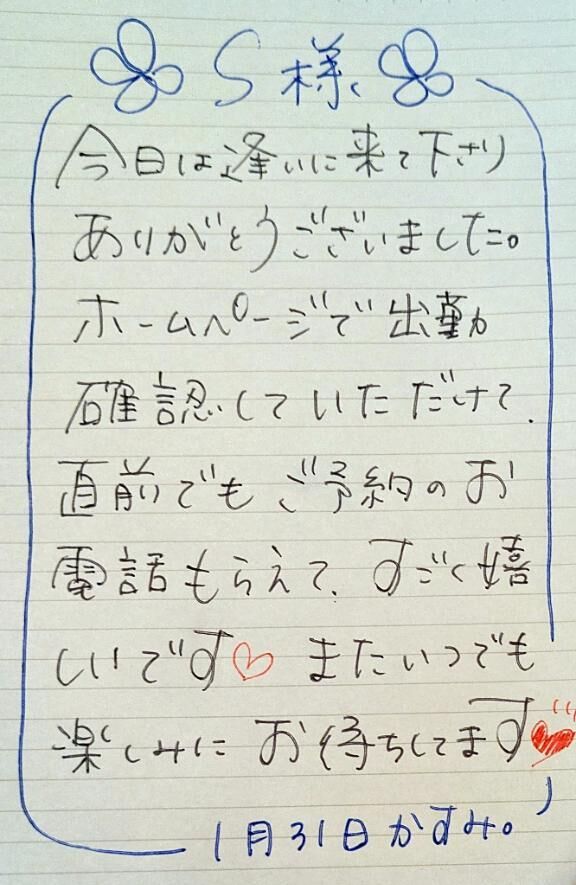 S様
今日は逢いに来て下さり
ありがとうございました。
ホームページで出勤
確認していただけて、
直前でもご予約のお
電話もらえて、すごく嬉
しいです♡ またいつでも
楽しみにお待ちしてます♥
1月31日かすみ。